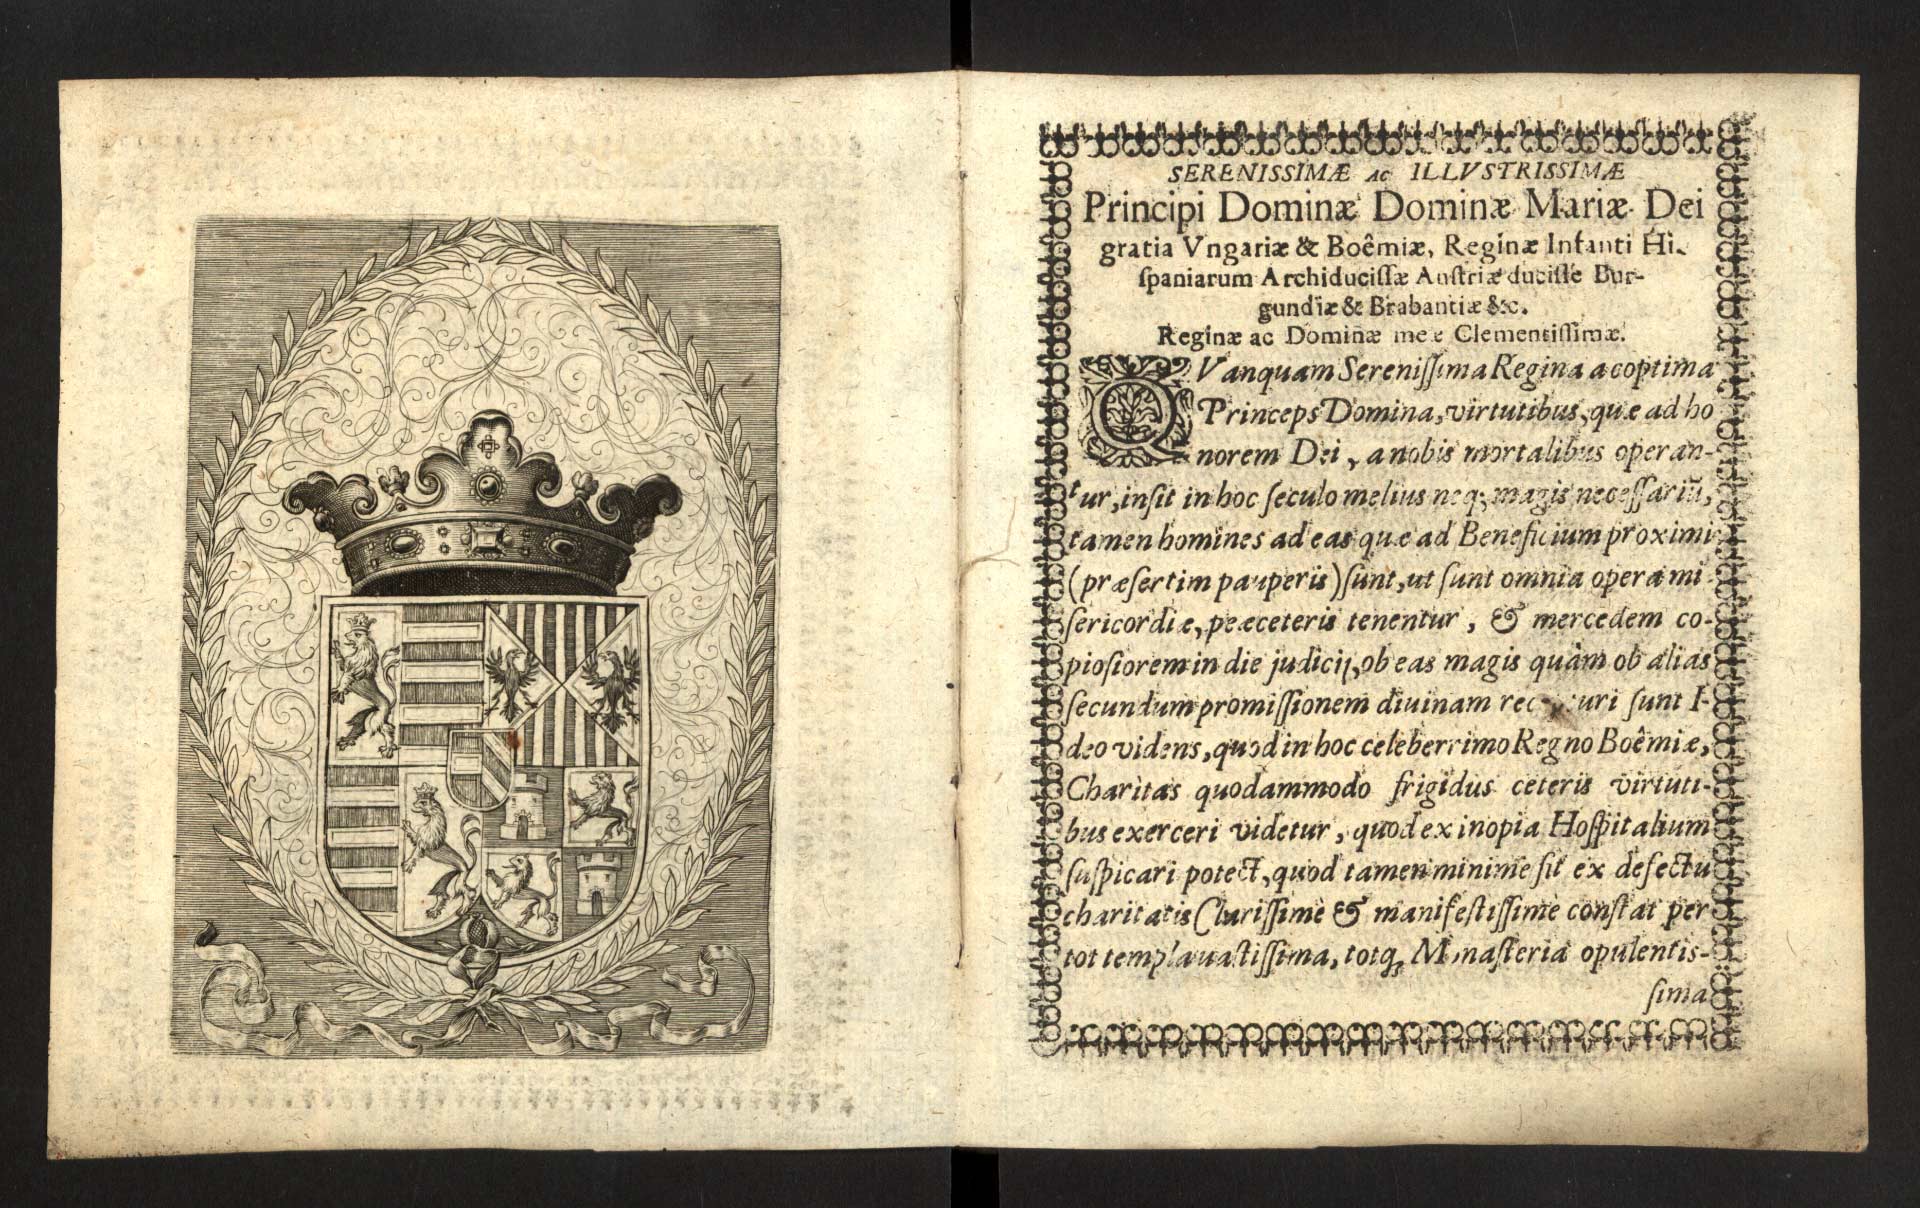 SERENISSIMÆ ac ILLVSTRISSIMÆ
Principi Dominæ Dominæ Mariæ Dei
gratia Vngariæ & Boêmiæ, Reginæ Infanti Hi-
ſpaniarum Archiduciſſæ Auſtriæ duciſſe Bur-
gundiæ & Brabantiæ &c.
Reginæ ac Dominæ meæ Clementiſſimæ.
QVanquam Sereniſſima Regina ac optima
Princeps Domina, virtutibus, quæ ad ho
norem Dei, a nobis mortalibus operan-
tur, inſit in hoc ſeculo melius neq; magis neceſſariū,
tamen homines ad eas quæ ad Beneficium proximi
(præſertim pauperis) ſunt, ut ſunt omnia opera mi-
ſericordiæ, peæceteris tenentur, & mercedem co-
pioſiorem in die judicij, ob eas magis quâm ob alias
ſecundum promiſſionem diuinam ſunt I-
deo videns, quod in hoc celeberrimo Regno Boêmiæ,
Charitas quodammodo frigidus ceteris virtuti-
bus exerceri videtur, quod ex inopia Hoſpitalium
ſuſpicari potect, quod tamen minime ſit ex defectu
charitatis Clariſſime & manifeſtiſſime conſtat per
tot templa uaſtiſſima, totq; Monaſteria opulentis-
ſima